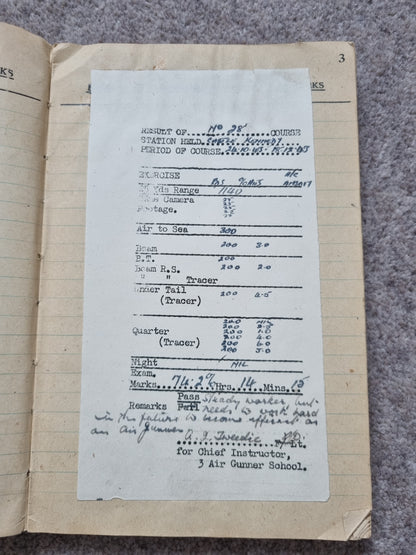 3
RKS
RKS
RESULT OF No 28 COURSE
STATION HELD Castle Kennedy
PERIOD OF COURSE 15.12.43
EXERCISE Rds %Hits A/C
Rds Range 1140
Camera
Footage.
Air to Sea 300
Beam 200 3.0
B.T. 200
Beam R.S. 200 2.0
" " Tracer
Under Tail 200 2.5
(Tracer)
200 NIL
200
Quarter 200
(Tracer) 200 6.0
200 3.0
Night NIL
Exam.
Marks 74.2% Hrs. 14 Mins. 15
Pass Steady worker, but
Remarks Fail needs to work hard
in the future to become efficient as
an Air Gunner
Tweedie F/Lt.
for Chief Instructor,
3 Air Gunner School.